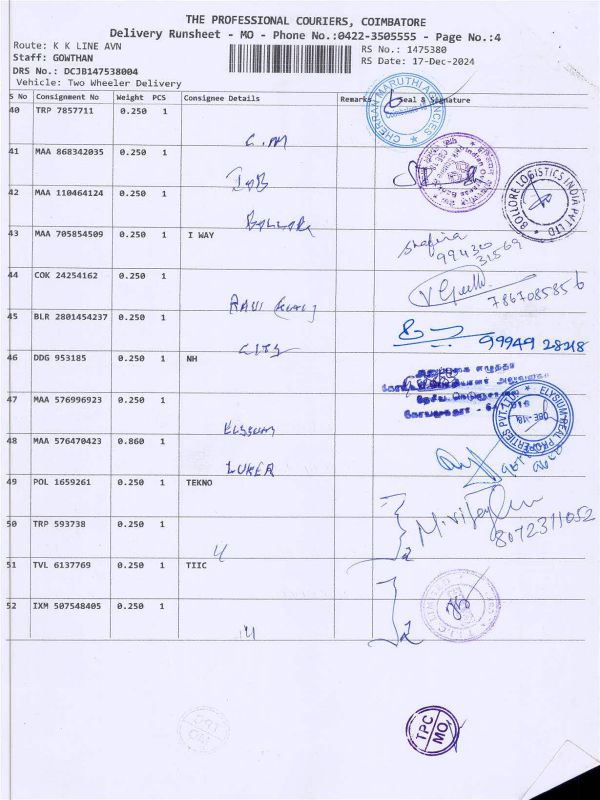 THE PROFESSIONAL COURIERS, COIMBATORE
Delivery Runsheet - MO - Phone No.:0422-3505555 - Page No.:4
Route: K K LINE AVN
RS No.: 1475380
Staff: GOWTHAN
RS Date: 17-Dec-2024
DRS No.: DCJB147538004
Vehicle: Two Wheeler Delivery
S No Consignment No Weight PCS Consignee Details Remarks Seal & Signature
40 TRP 7857711 0.250 1
CHERRAN MARUTHI AGENCIES
C.M
41 MAA 868342035 0.250 1
IOB
42 MAA 110464124 0.250 1
BOLLORE LOGISTICS INDIA PVT LTD
43 MAA 705854509 0.250 1 I WAY
99430
31569
44 COK 24254162 0.250 1
7867085856
RAVI
45 BLR 2801454237 0.250 1
CITY
99949 28218
46 DDG 953185 0.250 1 NH
47 MAA 576996923 0.250 1
ELYSIUM REAL PROPERTIES PVT. LTD
48 MAA 576470423 0.860 1
LUKER
49 POL 1659261 0.250 1 TEKNO
50 TRP 593738 0.250 1
8072311052
51 TVL 6137769 0.250 1 TIIC
52 IXM 507548405 0.250 1
TIIC LIMITED
TPC
MO